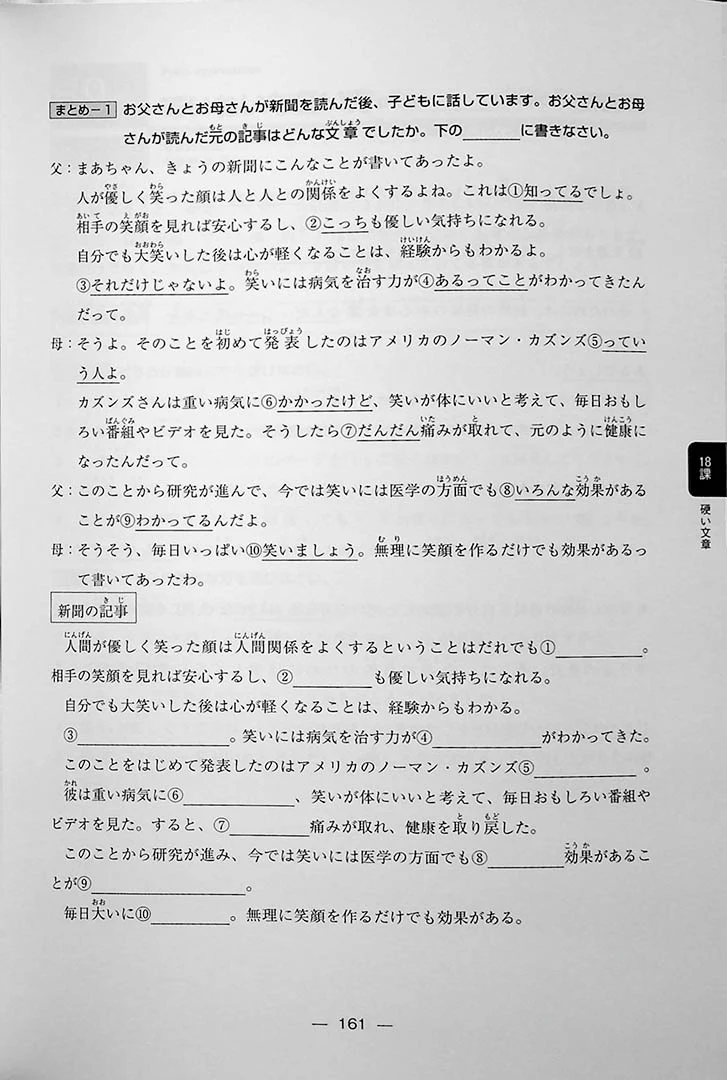 まとめ－1 お父さんとお母さんが新聞を読んだ後、子どもに話しています。お父さんとお母
さんが読んだ元の記事はどんな文章でしたか。下の______に書きなさい。
父：まあちゃん、きょうの新聞にこんなことが書いてあったよ。
人が優しく笑った顔は人と人との関係をよくするよね。これは①知ってるでしょ。
相手の笑顔を見れば安心するし、②こっちも優しい気持ちになれる。
自分でも大笑いした後は心が軽くなることは、経験からもわかるよ。
③それだけじゃないよ。笑いには病気を治す力が④あるってことがわかってきたん
だって。
母：そうよ。そのことを初めて発表したのはアメリカのノーマン・カズンズ⑤ってい
う人よ。
カズンズさんは重い病気に⑥かかったけど、笑いが体にいいと考えて、毎日おもし
ろい番組やビデオを見た。そうしたら⑦だんだん痛みが取れて、元のように健康に
なったんだって。
父：このことから研究が進んで、今では笑いには医学の方面でも⑧いろんな効果がある
ことが⑨わかってるんだよ。
母：そうそう、毎日いっぱい⑩笑いましょう。無理に笑顔を作るだけでも効果があるっ
て書いてあったわ。
新聞の記事
人間が優しく笑った顔は人間関係をよくするということはだれでも①__________。
相手の笑顔を見れば安心するし、②__________も優しい気持ちになれる。
自分でも大笑いした後は心が軽くなることは、経験からもわかる。
③__________。笑いには病気を治す力が④__________がわかってきた。
このことをはじめて発表したのはアメリカのノーマン・カズンズ⑤__________。
彼は重い病気に⑥__________、笑いが体にいいと考えて、毎日おもしろい番組や
ビデオを見た。すると、⑦__________痛みが取れ、健康を取り戻した。
このことから研究が進み、今では笑いには医学の方面でも⑧__________効果があるこ
とが⑨__________。
毎日大いに⑩__________。無理に笑顔を作るだけでも効果がある。
18課
硬い文章
― 161 ―